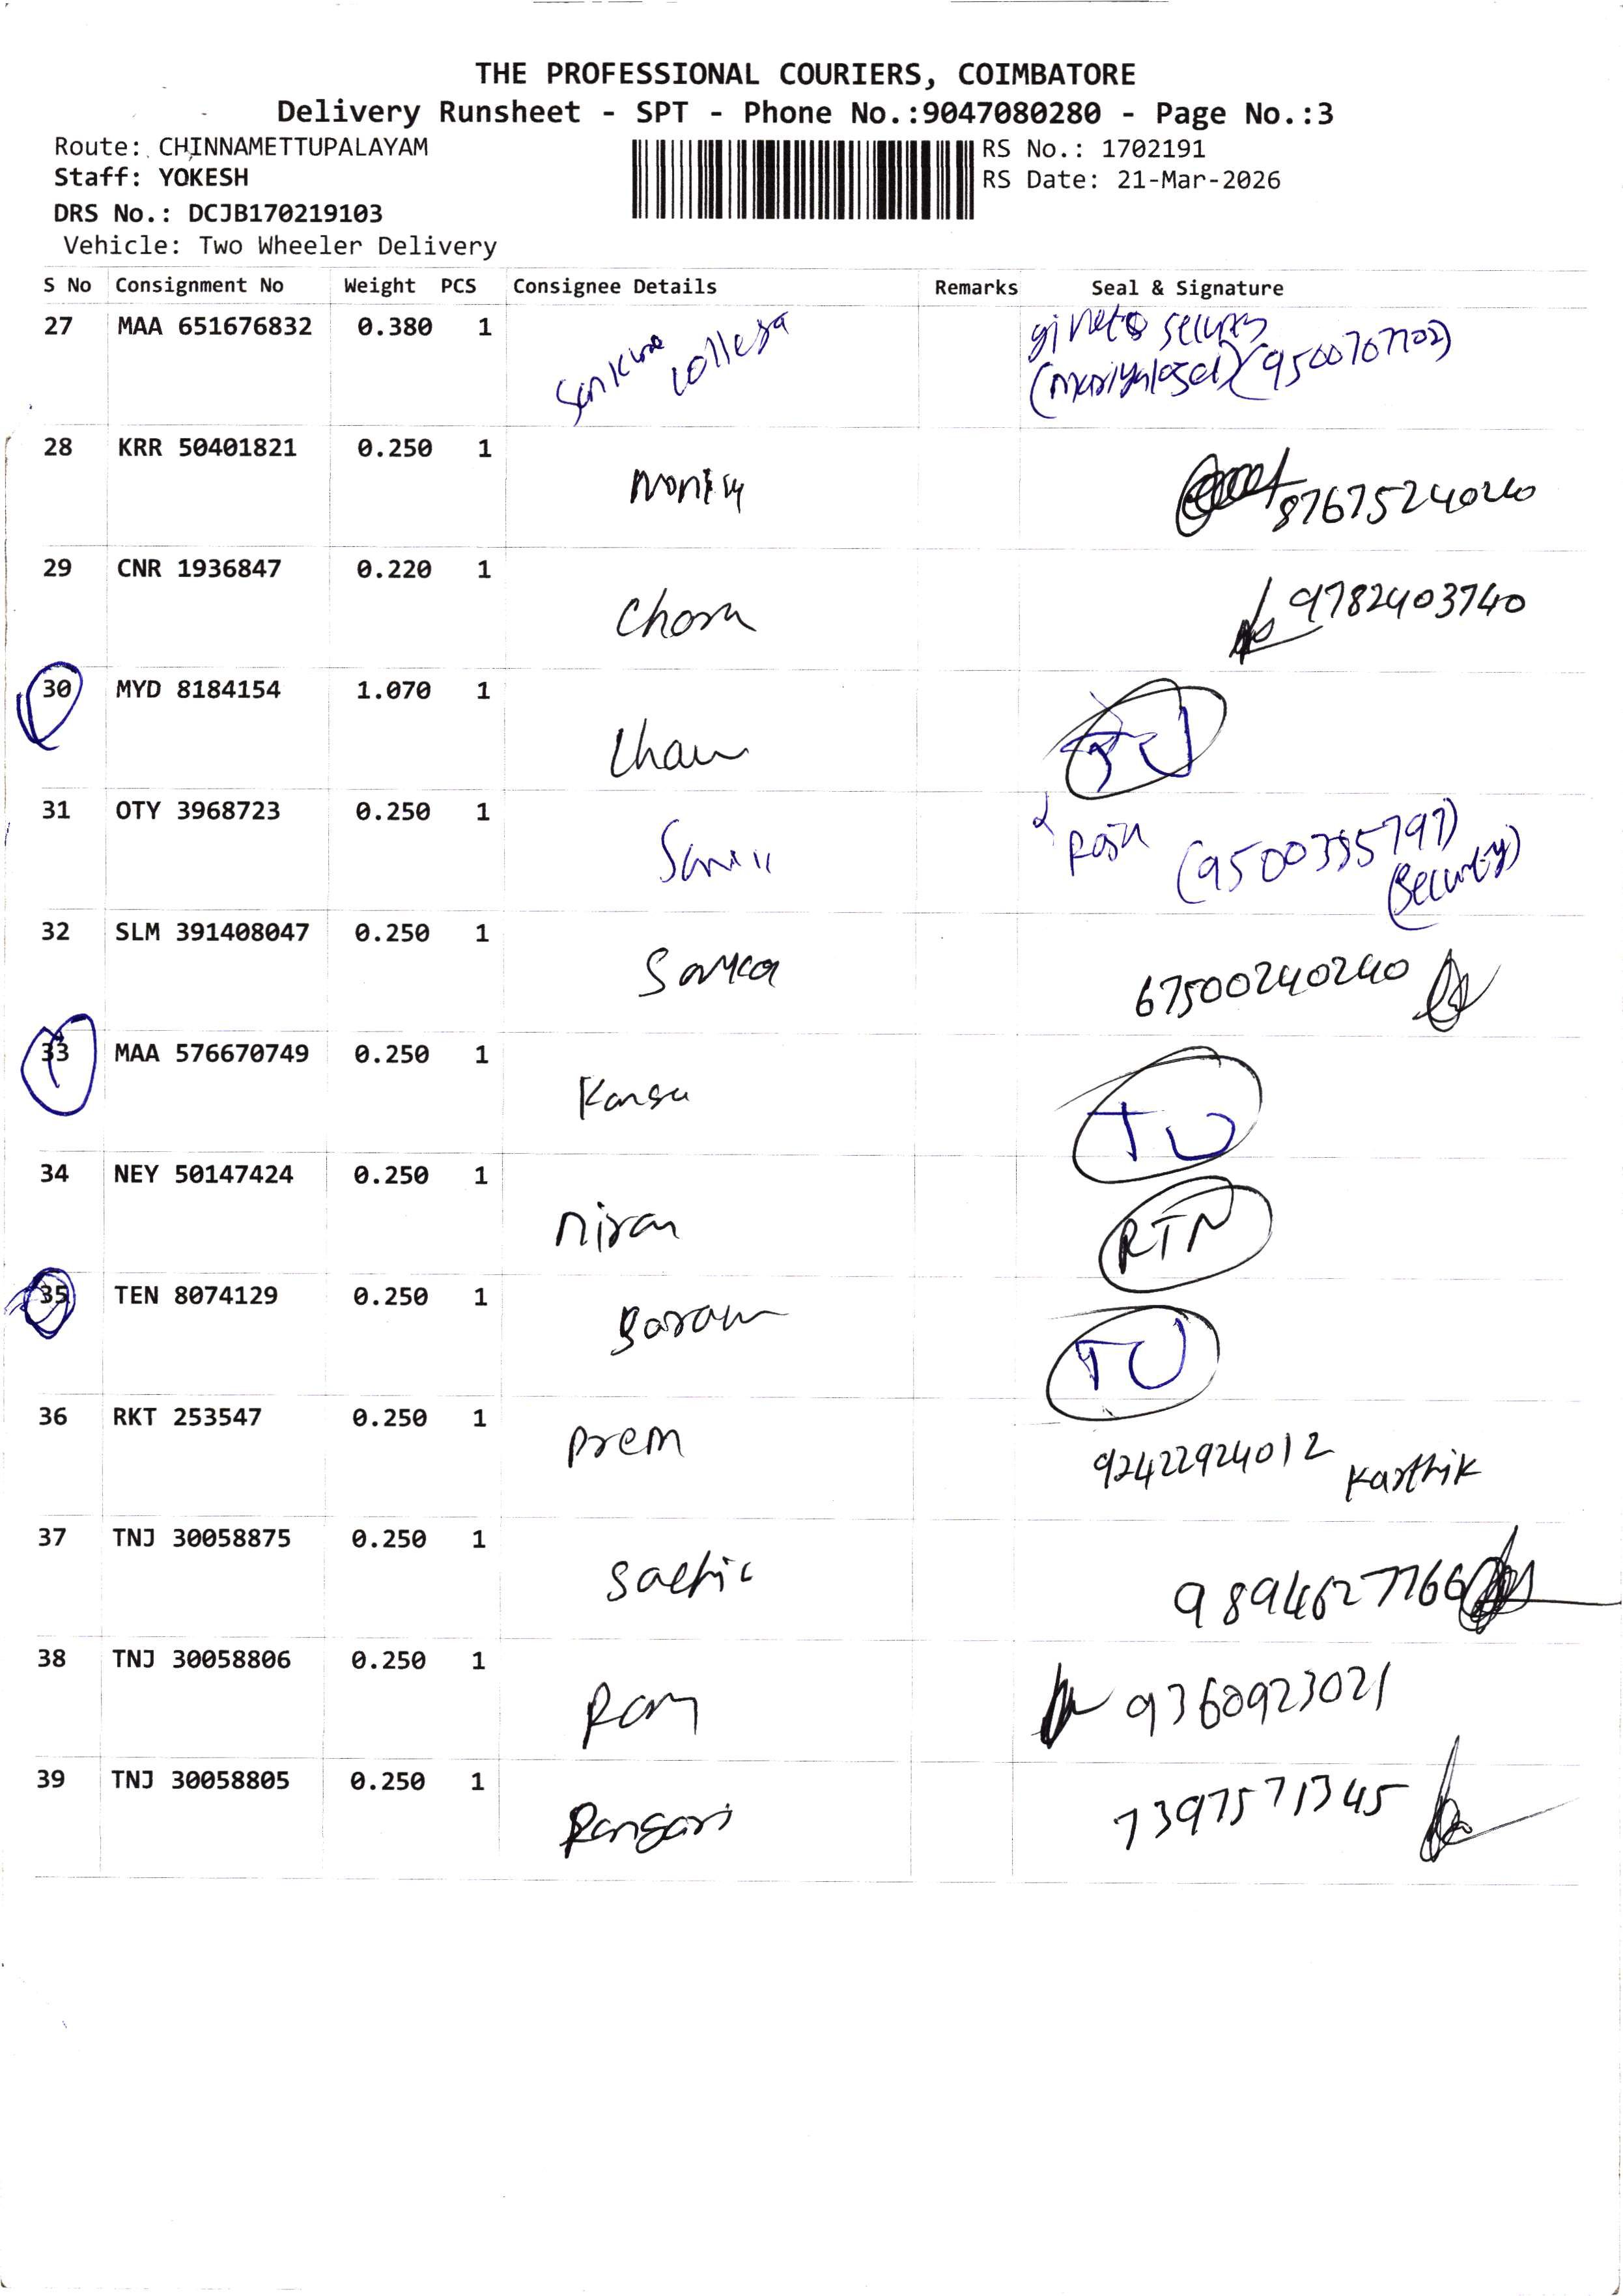 THE PROFESSIONAL COURIERS, COIMBATORE
Delivery Runsheet - SPT - Phone No.:9047080280 - Page No.:3
Route: CHINNAMETTUPALAYAM
Staff: YOKESH
DRS No.: DCJB170219103
Vehicle: Two Wheeler Delivery
RS No.: 1702191
RS Date: 21-Mar-2026
S No Consignment No Weight PCS Consignee Details Remarks Seal & Signature
27 MAA 651676832 0.380 1 (9500707702)
28 KRR 50401821 0.250 1 87675240240
29 CNR 1936847 0.220 1 9782403740
30 MYD 8184154 1.070 1
31 OTY 3968723 0.250 1 (9500335797)
(Security)
32 SLM 391408047 0.250 1 67500240240
33 MAA 576670749 0.250 1 TU
34 NEY 50147424 0.250 1 Niran RTN
35 TEN 8074129 0.250 1 TU
36 RKT 253547 0.250 1 Prem 92422924012 Karthik
37 TNJ 30058875 0.250 1 9894627766
38 TNJ 30058806 0.250 1 Ram 9360923021
39 TNJ 30058805 0.250 1 7397571345